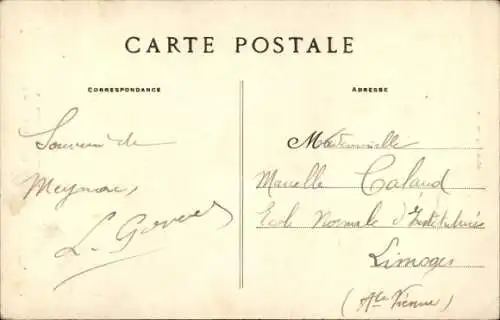 CARTE POSTALE
CORRESPONDANCE
Souvenir de
Meymac
ADRESSE
Mademoiselle
Marcelle Caland
Ecole Normale d'Institutrices
Limoges
(Hte Vienne)